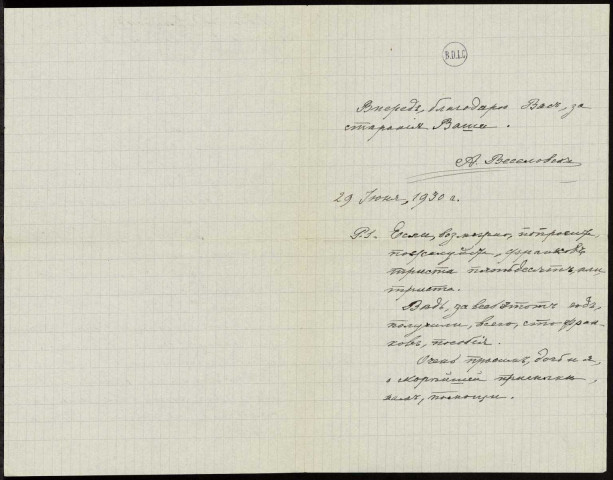 B.D.I.C
Впередъ, благодарю Васъ, за
старанія Ваши.
А. Веселовск
29 Іюня, 1930 г.
P.S. Если, возможно, попросите,
пожалуйста, франковъ,
триста пятьдесятъ, или
триста.
Вѣдь, за весь этотъ годъ,
получили, всего, сто фран-
ковъ, пособія.
Очень просимъ, и я,
о скорѣйшей присылки,
намъ, помощи.